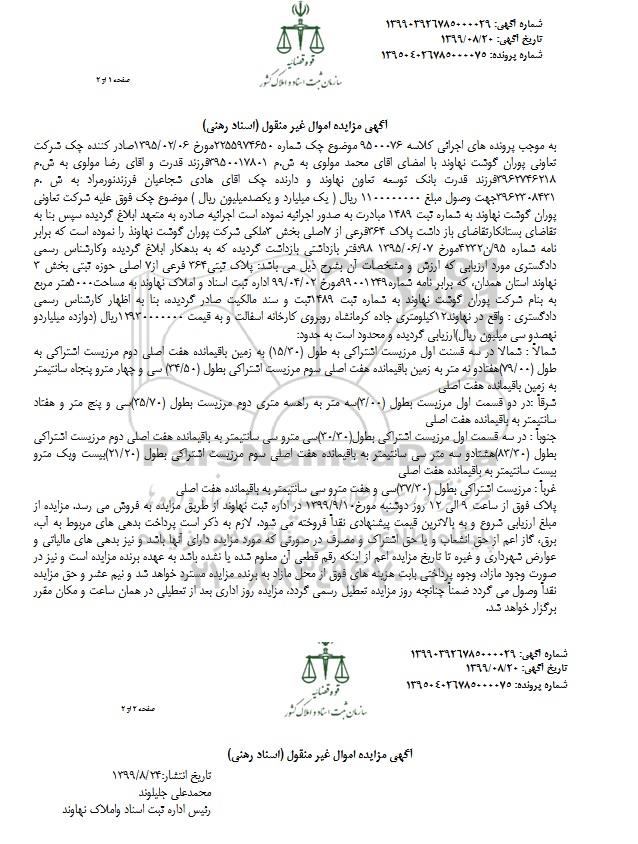 شماره آگهی: ۱۳۹۹۰۳۹۲۶۷۸۵۰۰۰۰۲۹
تاریخ آگهی: ۱۳۹۹/۰۸/۲۰
شماره پرونده: ۱۳۹۵۰۴۰۲۶۷۸۵۰۰۰۰۷۵
قوه قضائیه
سازمان ثبت اسناد و املاک کشور
صفحه ۱ از ۲
آگهی مزایده اموال غیر منقول (اسناد رهنی)
به موجب پرونده های اجرائی کلاسه ۹۵۰۰۰۷۶ موضوع چک شماره ۲۲۵۵۹۷۴۶۵۰مورخ ۱۳۹۵/۰۲/۰۶صادر کننده چک شرکت
تعاونی پوران گوشت نهاوند با امضای اقای محمد مولوی به ش.م ۳۹۵۰۰۱۷۸۰۱فرزند قدرت و اقای رضا مولوی به ش.م
۳۹۶۲۷۴۶۲۱۸فرزند قدرت بانک توسعه تعاون نهاوند و دارنده چک اقای هادی شجاعیان فرزندنورمراد به ش .م
۳۹۶۲۳۰۸۴۳۱جهت وصول مبلغ ۱۱۰۰۰۰۰۰۰۰ ریال ( یک میلیارد و یکصدمیلیون ریال ) موضوع چک فوق علیه شرکت تعاونی
پوران گوشت نهاوند به شماره ثبت ۱۴۸۹ مبادرت به صدور اجرائیه نموده است اجرائیه صادره به متعهد ابلاغ گردیده سپس بنا به
تقاضای بستانکارتقاضای باز داشت پلاک ۳۶۴فرعی از ۷اصلی بخش ۳ملکی شرکت پوران گوشت نهاوند را نموده است که برابر
نامه شماره ۹۵/ن۴۲۳۲مورخ ۱۳۹۵/۰۶/۰۷ ۹۸دفتر بازداشتی بازداشت گردیده که به بدهکار ابلاغ گردیده وکارشناس رسمی
دادگستری مورد ارزیابی که ارزش و مشخصات آن بشرح ذیل می باشد: پلاک ثبتی۳۶۴ فرعی از۷ اصلی حوزه ثبتی بخش ۳
نهاوند استان همدان، که برابر نامه شماره۹۹۰۰۱۲۴۹مورخ ۹۹/۰۴/۰۲ اداره ثبت اسناد و املاک نهاوند به مساحت۵۰۰۰متر مربع
به بنام شرکت پوران گوشت نهاوند به شماره ثبت ۱۴۸۹ثبت و سند مالکیت صادر گردیده، بنا به اظهار کارشناس رسمی
دادگستری : واقع در نهاوند۱۲کیلومتری جاده کرمانشاه روبروی کارخانه اسفالت و به قیمت ۱۲۹۳۰۰۰۰۰۰۰ریال (دوازده میلیاردو
نهصدو سی میلیون ریال)ارزیابی گردیده و محدود است به حدود:
شمالاً : شمالا در سه قسنت اول مرزیست اشتراکی به طول (۱۵/۳۰) به زمین باقیمانده هفت اصلی دوم مرزیست اشتراکی به
طول (۷۹/۰۰)هفتادو نه متر به زمین باقیمانده هفت اصلی سوم مرزیست اشتراکی بطول (۳۴/۵۰) سی و چهار مترو پنجاه سانتیمتر
به زمین باقیمانده هفت اصلی
شرقاً :در دو قسمت اول مرزیست بطول (۳/۰۰)سه متر به راهسه متری دوم مرزیست بطول (۳۵/۷۰)سی و پنج متر و هفتاد
سانتیمتر به باقیمانده هفت اصلی
جنوباً : در سه قسمت اول مرزیست اشتراکی بطول(۳۰/۳۰)سی مترو سی سانتیمتر به باقیمانده هفت اصلی دوم مرزیست اشتراکی
بطول (۸۳/۳۰)هشتادو سه متر سی سانتیمتر به باقیمانده هفت اصلی سوم مرزیست اشتراکی بطول (۲۱/۲۰)بیست ویک مترو
بیست سانتیمتر به باقیمانده هفت اصلی
غرباً : مرزیست اشتراکی بطول (۳۷/۳۰)سی و هفت مترو سی سانتیمتر به باقیمانده هفت اصلی
پلاک فوق از ساعت ۹ الی ۱۲ روز دوشنبه مورخ۱۳۹۹/۹/۱۰ در اداره ثبت نهاوند از طریق مزایده به فروش می رسد. مزایده از
مبلغ ارزیابی شروع و به بالاترین قیمت پیشنهادی نقداً فروخته می شود. لازم به ذکر است پرداخت بدهی های مربوط به آب،
برق، گاز اعم از حق انشعاب و یا حق اشتراک و مصرف در صورتی که مورد مزایده دارای آنها باشد و نیز بدهی های مالیاتی و
عوارض شهرداری و غیره تا تاریخ مزایده اعم از اینکه رقم قطعی آن معلوم شده یا نشده باشد به عهده برنده مزایده است و نیز در
صورت وجود مازاد، وجوه پرداختی بابت هزینه های فوق از محل مازاد به برنده مزایده مسترد خواهد شد و نیم عشر و حق مزایده
نقداً وصول می گردد ضمناً چنانچه روز مزایده تعطیل رسمی گردد، مزایده روز اداری بعد از تعطیلی در همان ساعت و مکان مقرر
برگزار خواهد شد.
شماره آگهی: ۱۳۹۹۰۳۹۲۶۷۸۵۰۰۰۰۲۹
تاریخ آگهی: ۱۳۹۹/۰۸/۲۰
شماره پرونده: ۱۳۹۵۰۴۰۲۶۷۸۵۰۰۰۰۷۵
قوه قضائیه
سازمان ثبت اسناد و املاک کشور
صفحه ۲ از ۲
آگهی مزایده اموال غیر منقول (اسناد رهنی)
تاریخ انتشار:۱۳۹۹/۸/۲۴
محمدعلی جلیلوند
رئیس اداره ثبت اسناد واملاک نهاوند